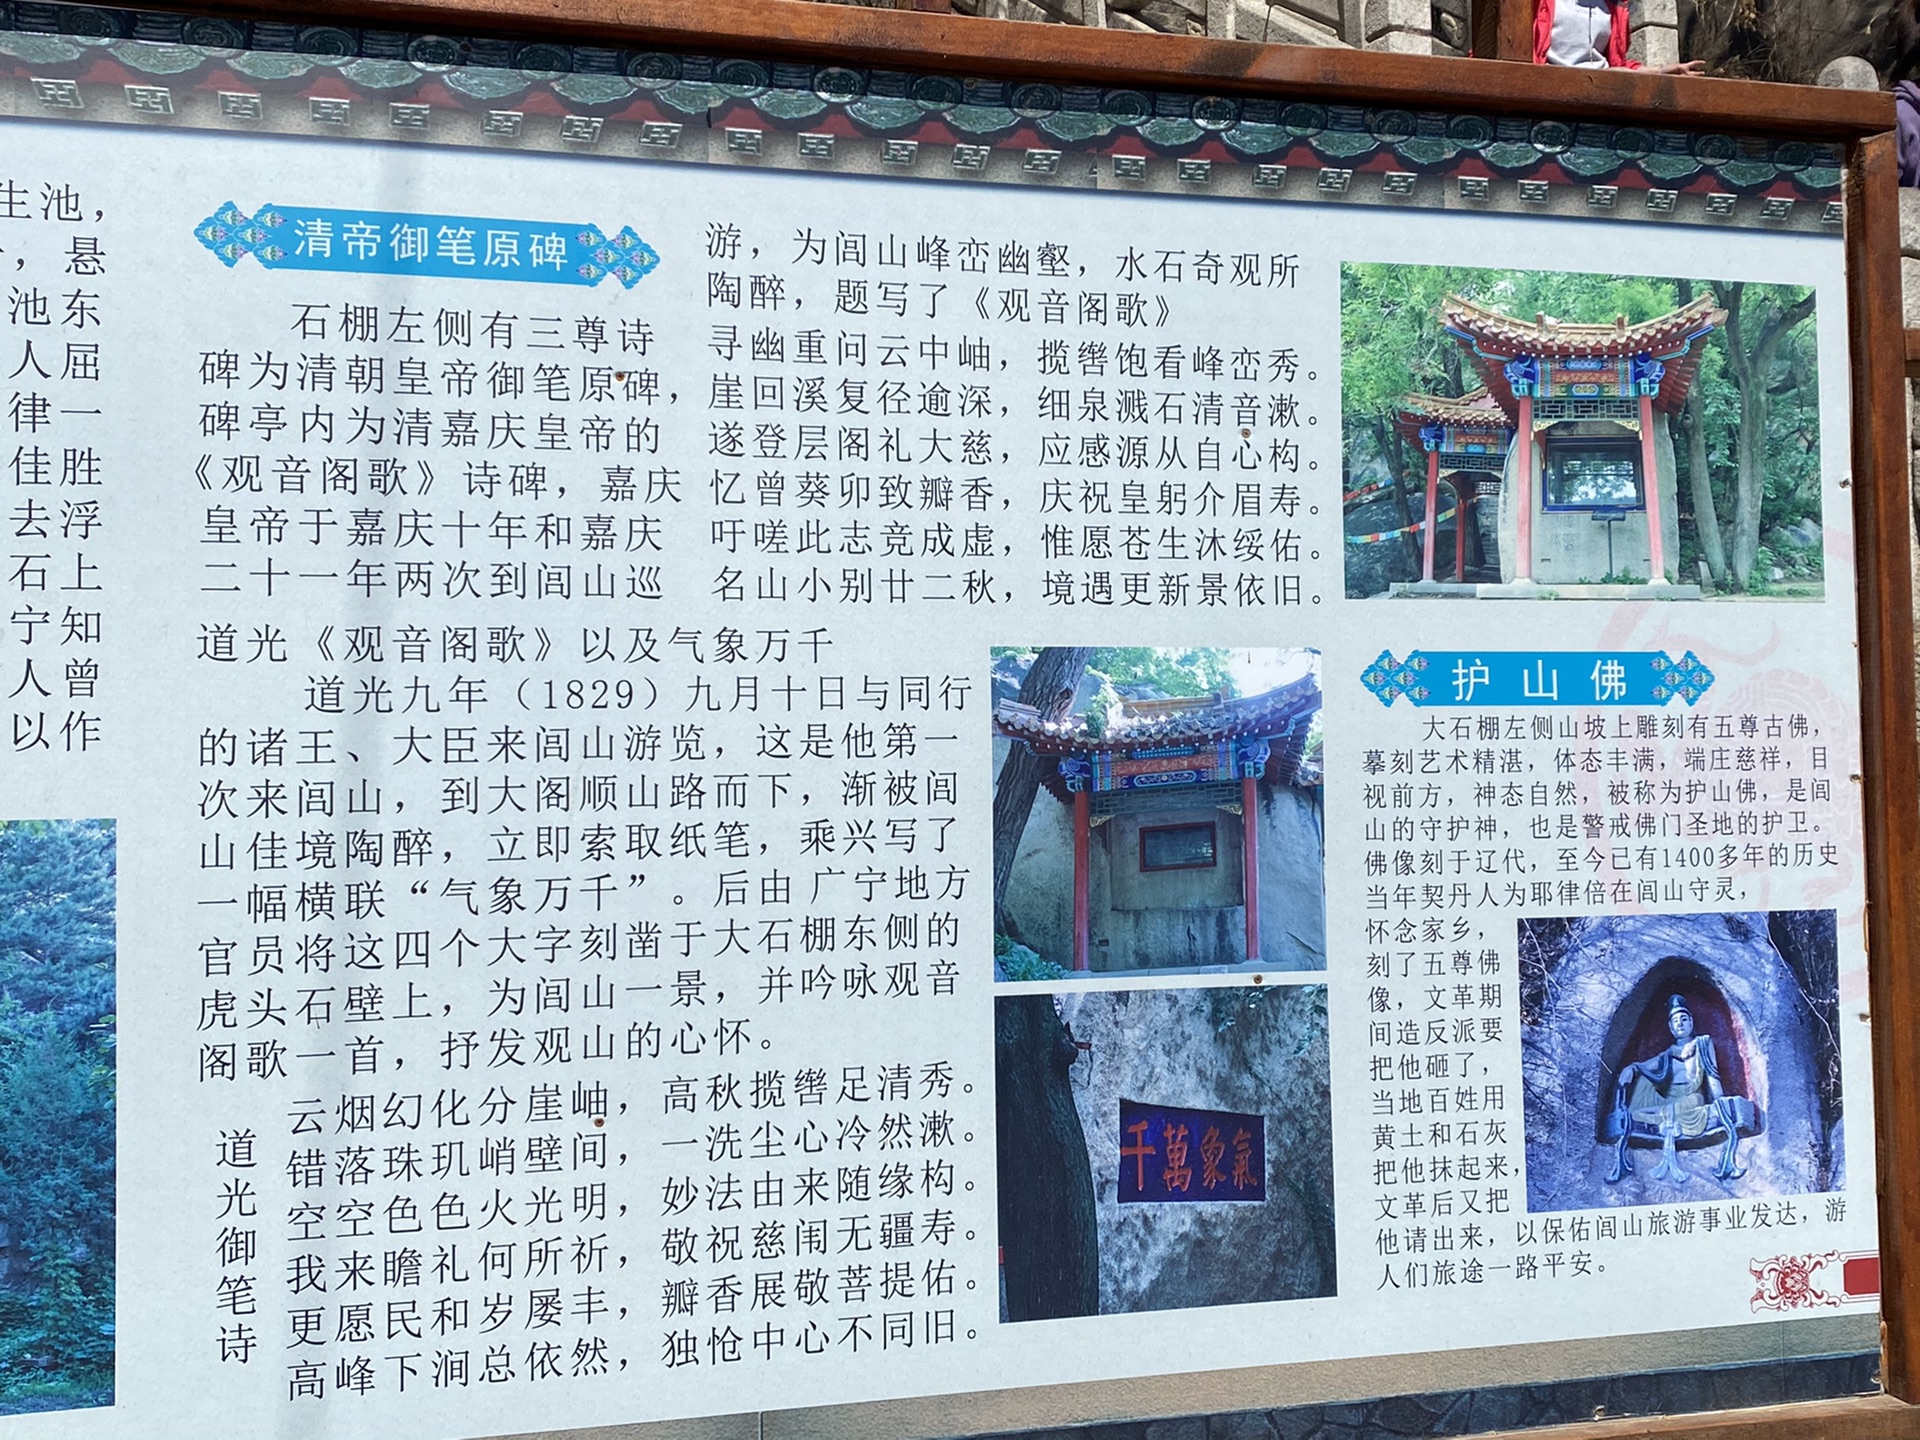 生池，
，悬
池东
人屈
律一
佳胜
去浮
石上
宁知
人曾
以作
清帝御笔原碑
石棚左侧有三尊诗
碑为清朝皇帝御笔原碑，
碑亭内为清嘉庆皇帝的
《观音阁歌》诗碑，嘉庆
皇帝于嘉庆十年和嘉庆
二十一年两次到闾山巡
游，为闾山峰峦幽壑，水石奇观所
陶醉，题写了《观音阁歌》
寻幽重问云中岫，揽辔饱看峰峦秀。
崖回溪复径逾深，细泉溅石清音漱。
遂登层阁礼大慈，应感源从自心构。
忆曾葵卯致瓣香，庆祝皇躬介眉寿。
吁嗟此志竞成虚，惟愿苍生沐绥佑。
名山小别廿二秋，境遇更新景依旧。
道光《观音阁歌》以及气象万千
道光九年（1829）九月十日与同行
的诸王、大臣来闾山游览，这是他第一
次来闾山，到大阁顺山路而下，渐被闾
山佳境陶醉，立即索取纸笔，乘兴写了
一幅横联“气象万千”。后由广宁地方
官员将这四个大字刻凿于大石棚东侧的
虎头石壁上，为闾山一景，并吟咏观音
阁歌一首，抒发观山的心怀。
道光御笔诗
云烟幻化分崖岫，高秋揽辔足清秀。
错落珠玑峭壁间，一洗尘心冷然漱。
空空色色火光明，妙法由来随缘构。
我来瞻礼何所祈，敬祝慈闱无疆寿。
更愿民和岁屡丰，瓣香展敬菩提佑。
高峰下涧总依然，独怆中心不同旧。
千萬象氣
护山佛
大石棚左侧山坡上雕刻有五尊古佛，
摹刻艺术精湛，体态丰满，端庄慈祥，目
视前方，神态自然，被称为护山佛，是闾
山的守护神，也是警戒佛门圣地的护卫。
佛像刻于辽代，至今已有1400多年的历史
当年契丹人为耶律倍在闾山守灵，
怀念家乡，
刻了五尊佛
像，文革期
间造反派要
把他砸了，
当地百姓用
黄土和石灰
把他抹起来，
文革后又把
他请出来，以保佑闾山旅游事业发达，游
人们旅途一路平安。